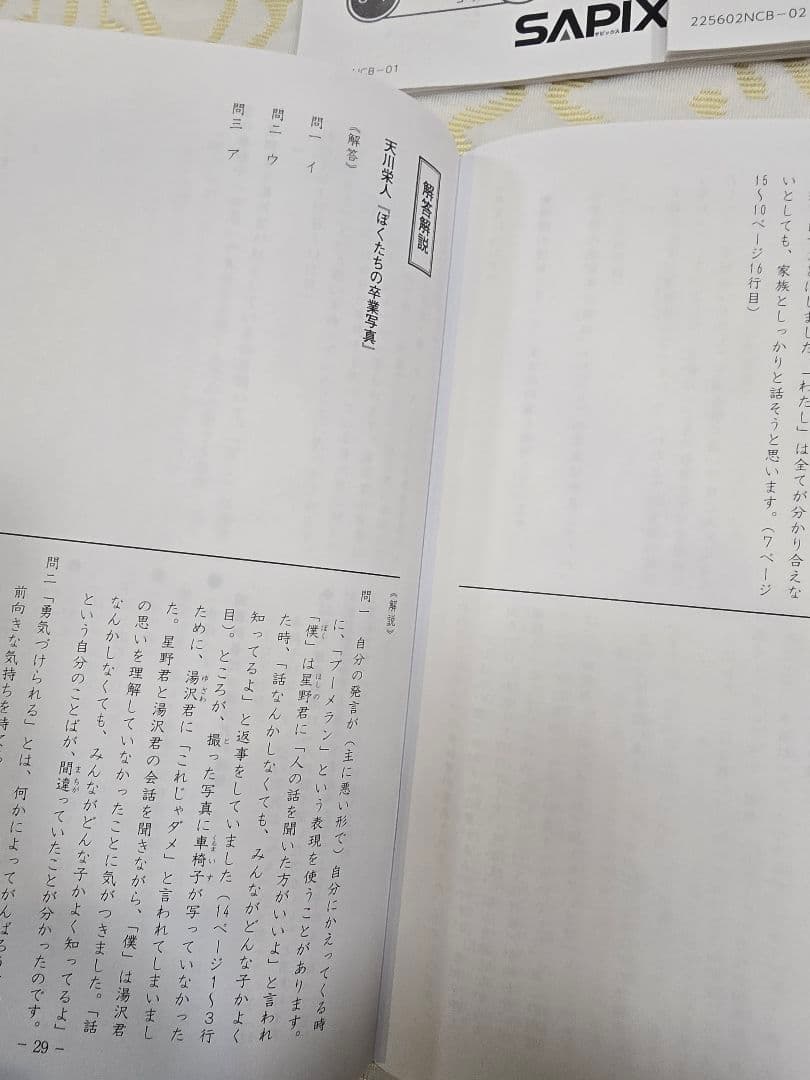 SAPIX
サピックス
225602NCB-02
NCB-01
「わたし」は全てが分かり合えな
いとしても、家族としっかりと話そうと思います。(7ページ
15〜10ページ16行目)
解答解説
天川栄人『ぼくたちの卒業写真』
《解答》
問一 イ
問二 ウ
問三 ア
《解説》
問一 自分の発言が(主に悪い形で)自分にかえってくる時
に、「ブーメラン」という表現を使うことがあります。
「僕」は星野君に「人の話を聞いた方がいいよ」と言われ
た時、「話なんかしなくても、みんながどんな子かよく
知ってるよ」と返事をしていました(14ページ1〜3行
目)。ところが、撮った写真に車椅子が写っていなかった
ために、湯沢君に「これじゃダメ」と言われてしまいまし
た。星野君と湯沢君の会話を聞きながら、「僕」は湯沢君
の思いを理解していなかったことに気がつきました。「話
なんかしなくても、みんながどんな子かよく知ってるよ」
という自分のことばが、間違っていたことが分かったのです。
問二 「勇気づけられる」とは、何かによってがんばろう
前向きな気持ちを持
- 29 -